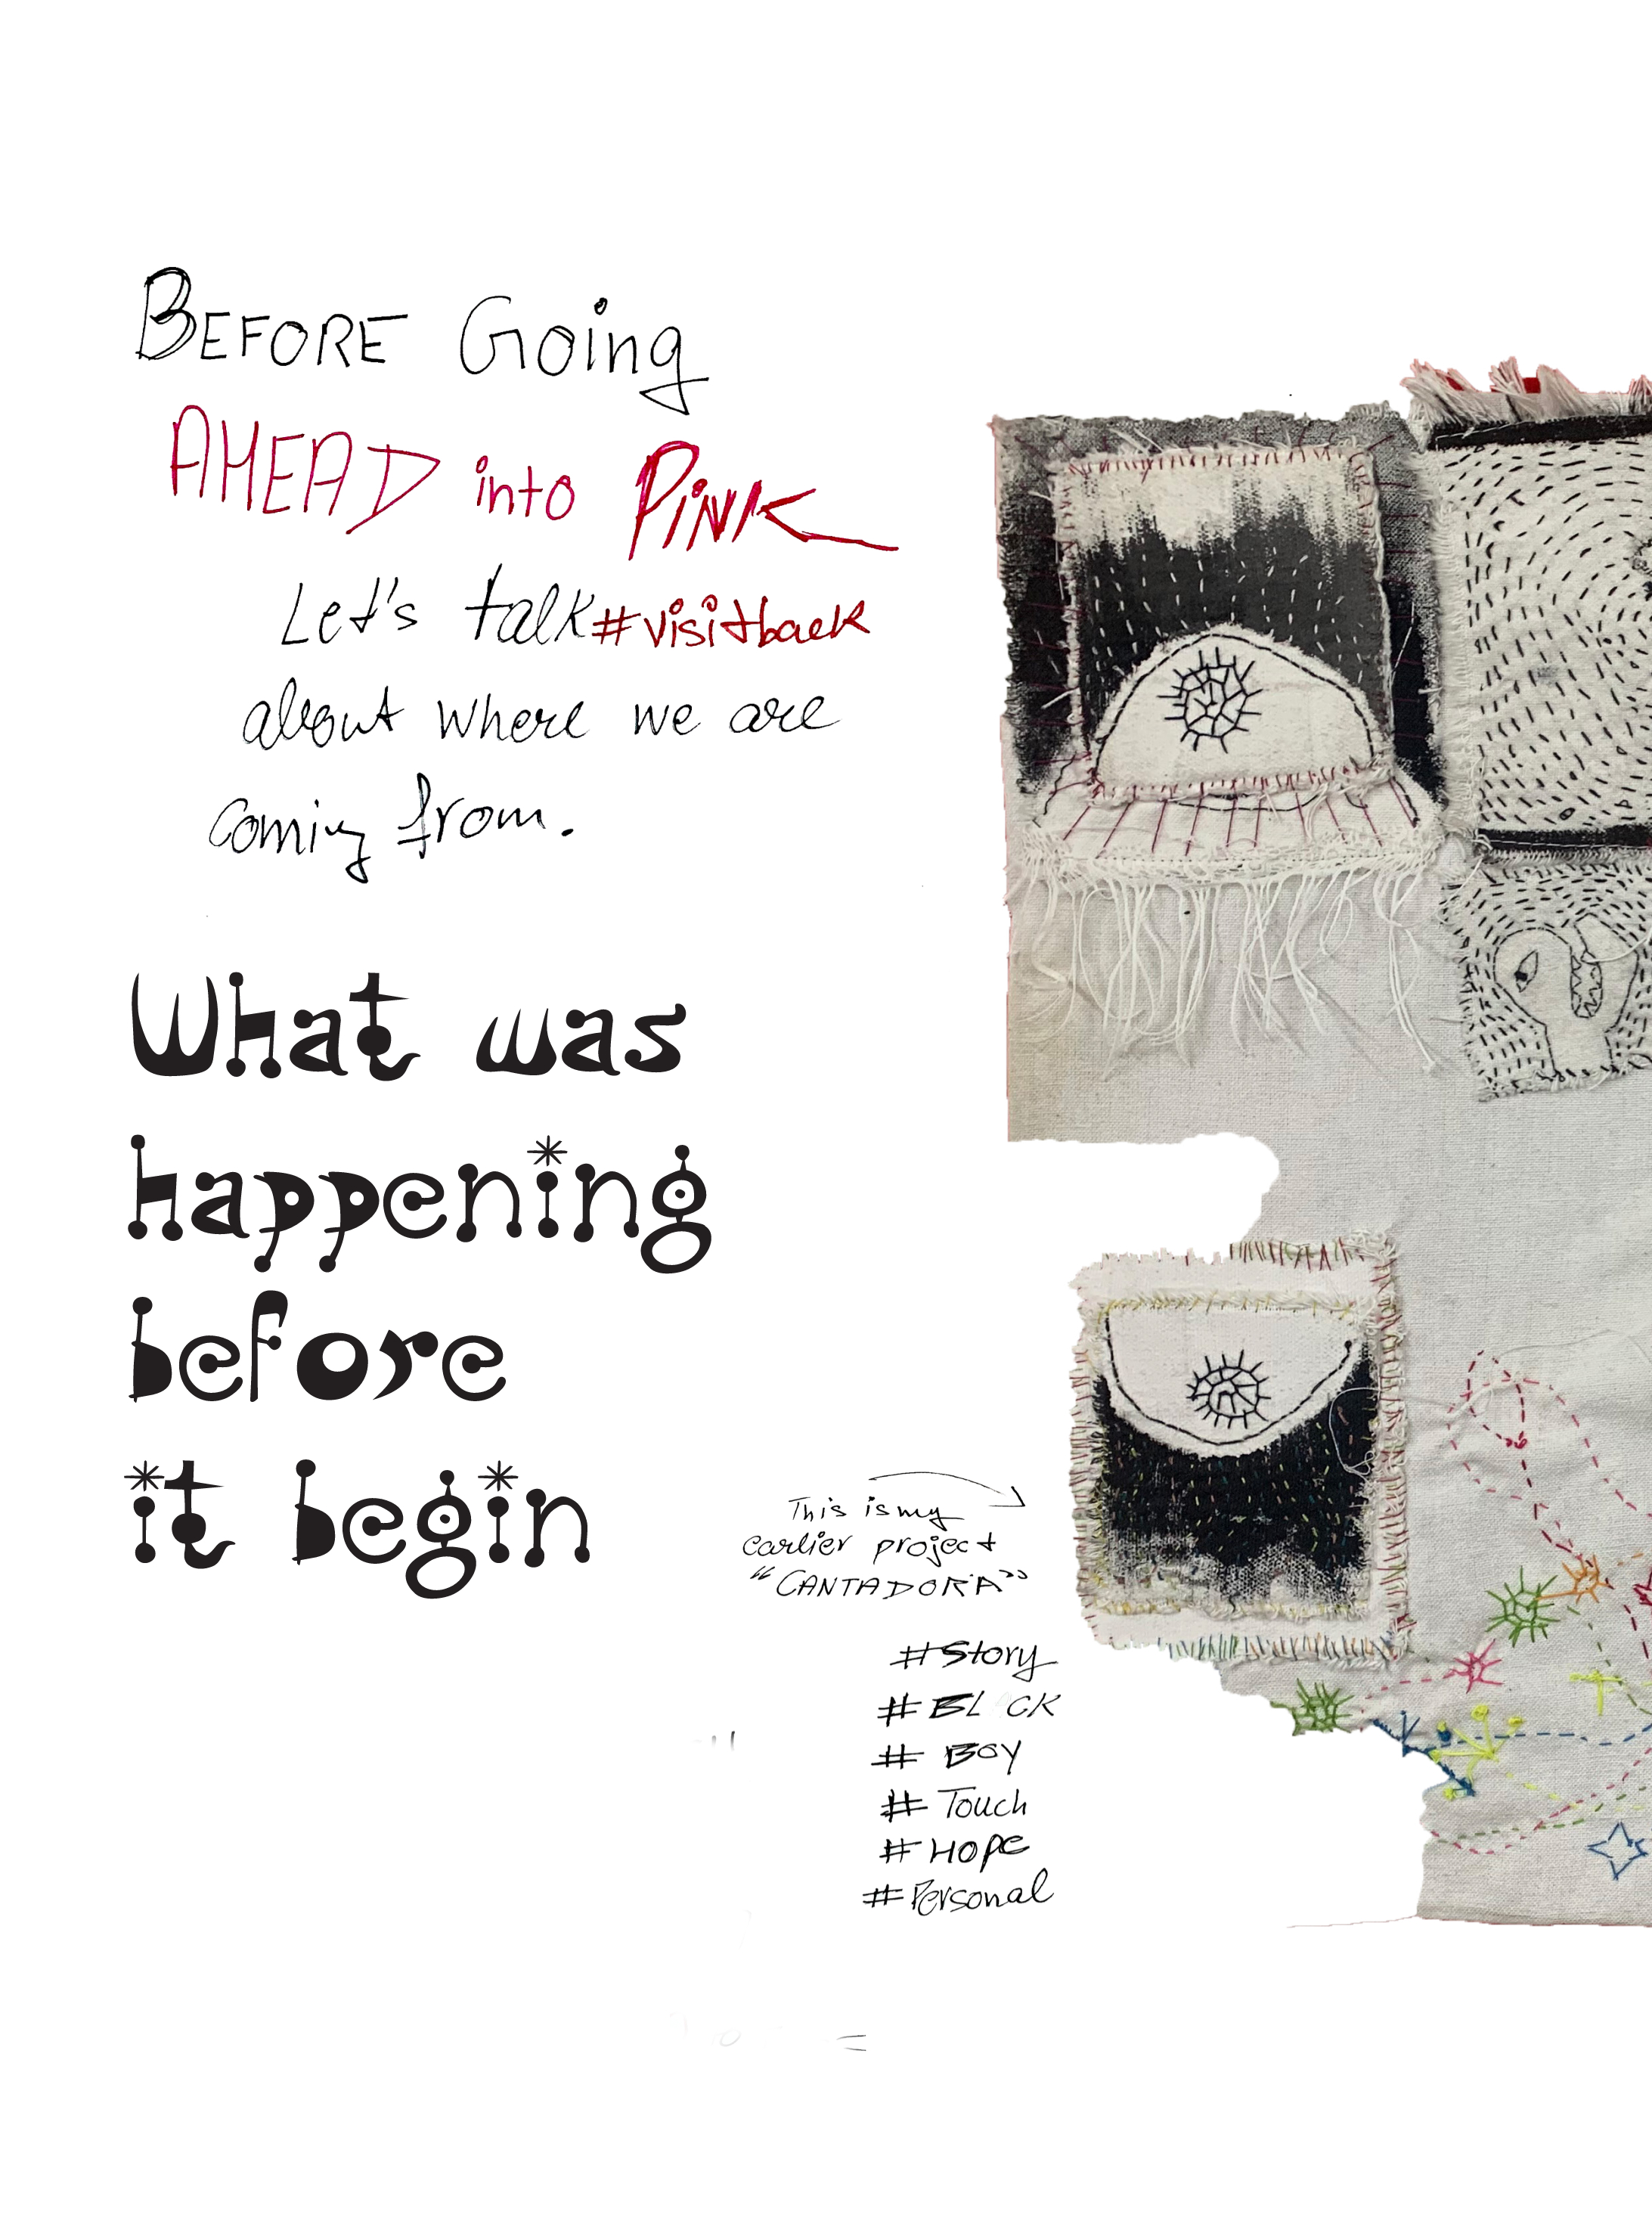 BEFORE Going
AHEAD into PINK
Let's talk #visitback
about where we are
coming from.
What was
happening
before
it begin
This is my
earlier project
"CANTADORA"
#Story
#BL CK
# BOY
# Touch
# HOPE
#Personal